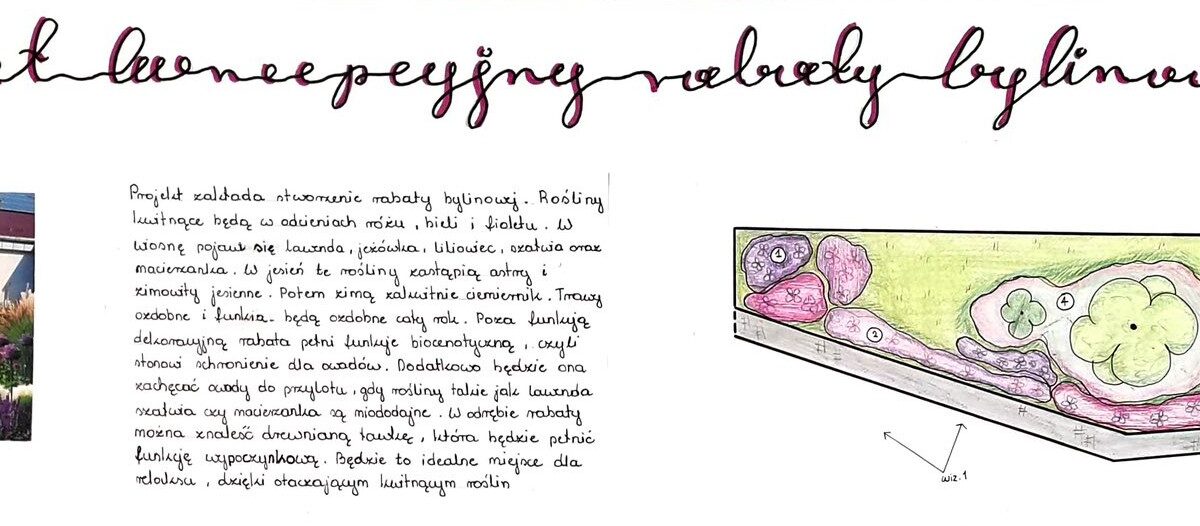 t koncepcyjny rabaty bylinow
Projekt zakłada stworzenie rabaty bylinowej. Rośliny
kwitnące będą w odcieniach różu, bieli i fioletu. W
wiosnę pojawi się lawenda, jeżówka, liliowiec, szałwia oraz
macierzanka. W jesień te rośliny zastąpią astry i
zimowity jesienne. Potem zimą zakwitnie ciemiernik. Trawy
ozdobne i funkia będą ozdobne cały rok. Poza funkcją
dekoracyjną rabata pełni funkcje biocenotyczną, czyli
stanowi schronienie dla owadów. Dodatkowo będzie ona
zachęcać owady do przylotu, gdy rośliny takie jak lawenda
szałwia czy macierzanka są miododajne. W odrębie rabaty
można znaleść drewnianą ławkę, która będzie pełnić
funkcję wypoczynkową. Będzie to idealne miejsce dla
relaksu, dzięki otaczającym kwitnącym roślin
1
2
4
wiz.1